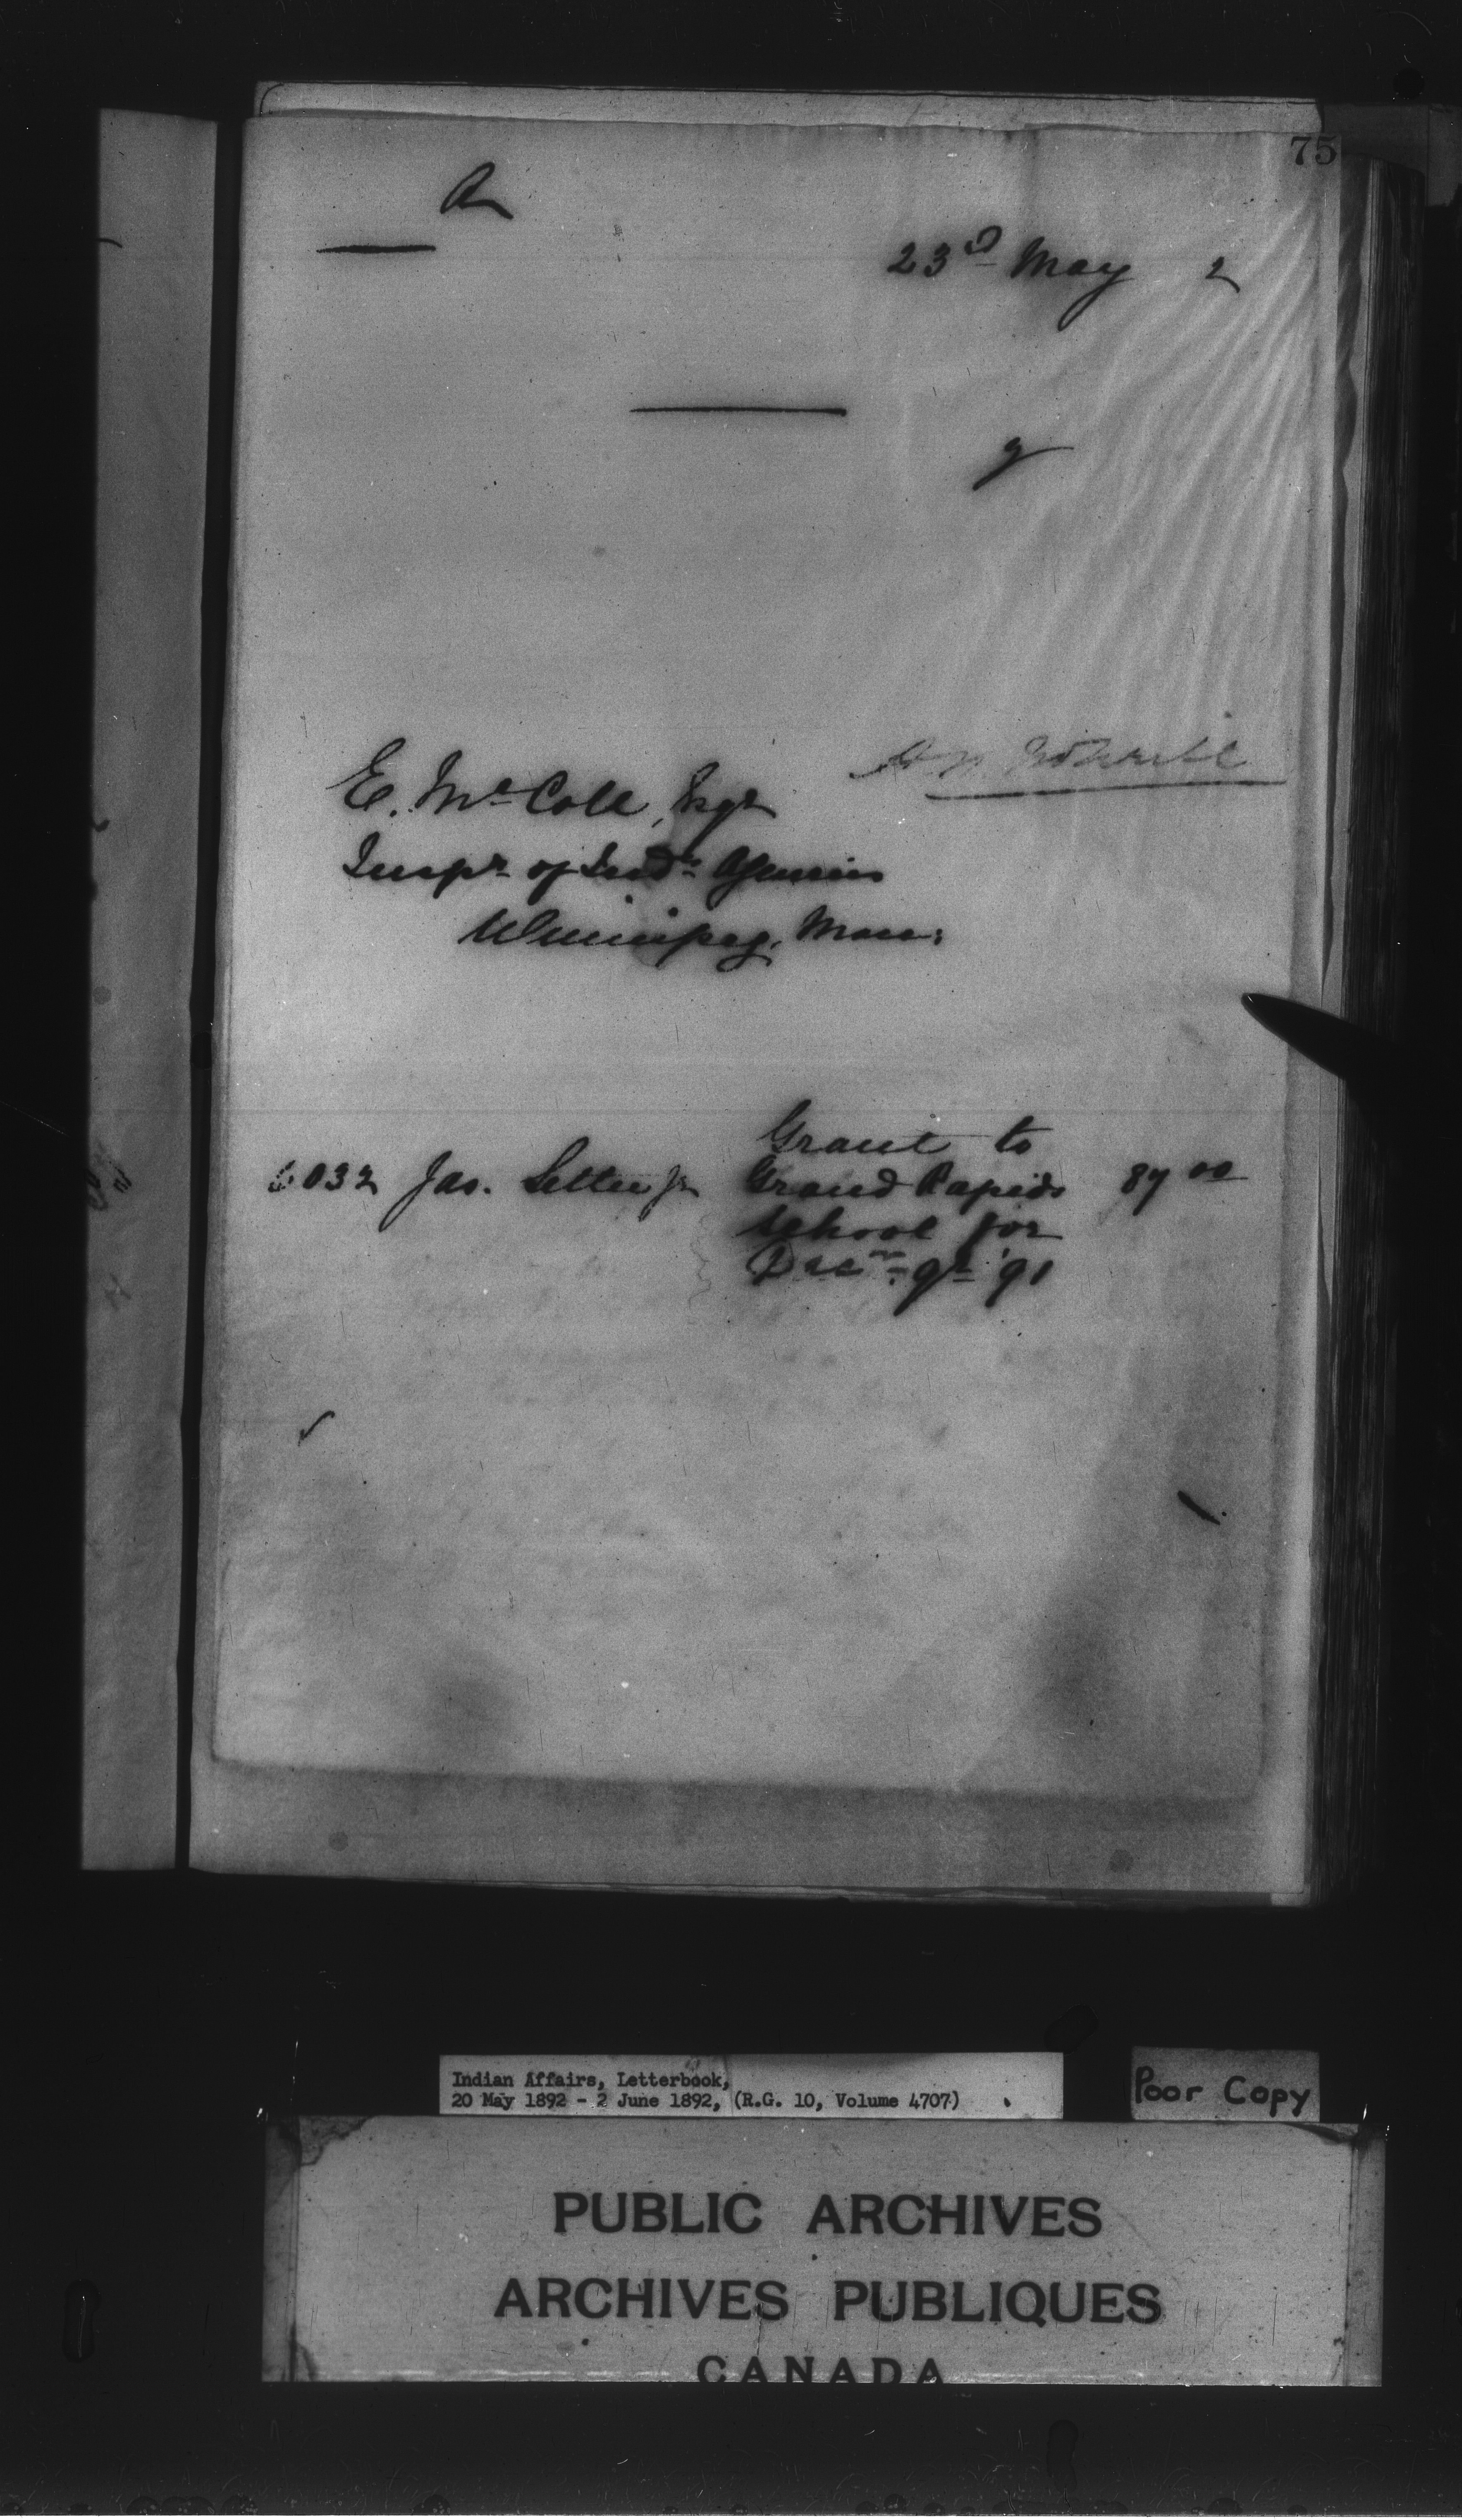 75
23ᴰ May 2
E. McColl, Esqr
Inspr of Indn Agencies
Winnipeg, Man:
Grant to
6032 Jas. Settee Jr Grand Rapids 87 00
school for
Decr qr '91
Indian Affairs, Letterbook,
20 May 1892 - 2 June 1892, (R.G. 10, Volume 4707)
Poor Copy
PUBLIC ARCHIVES
ARCHIVES PUBLIQUES
CANADA